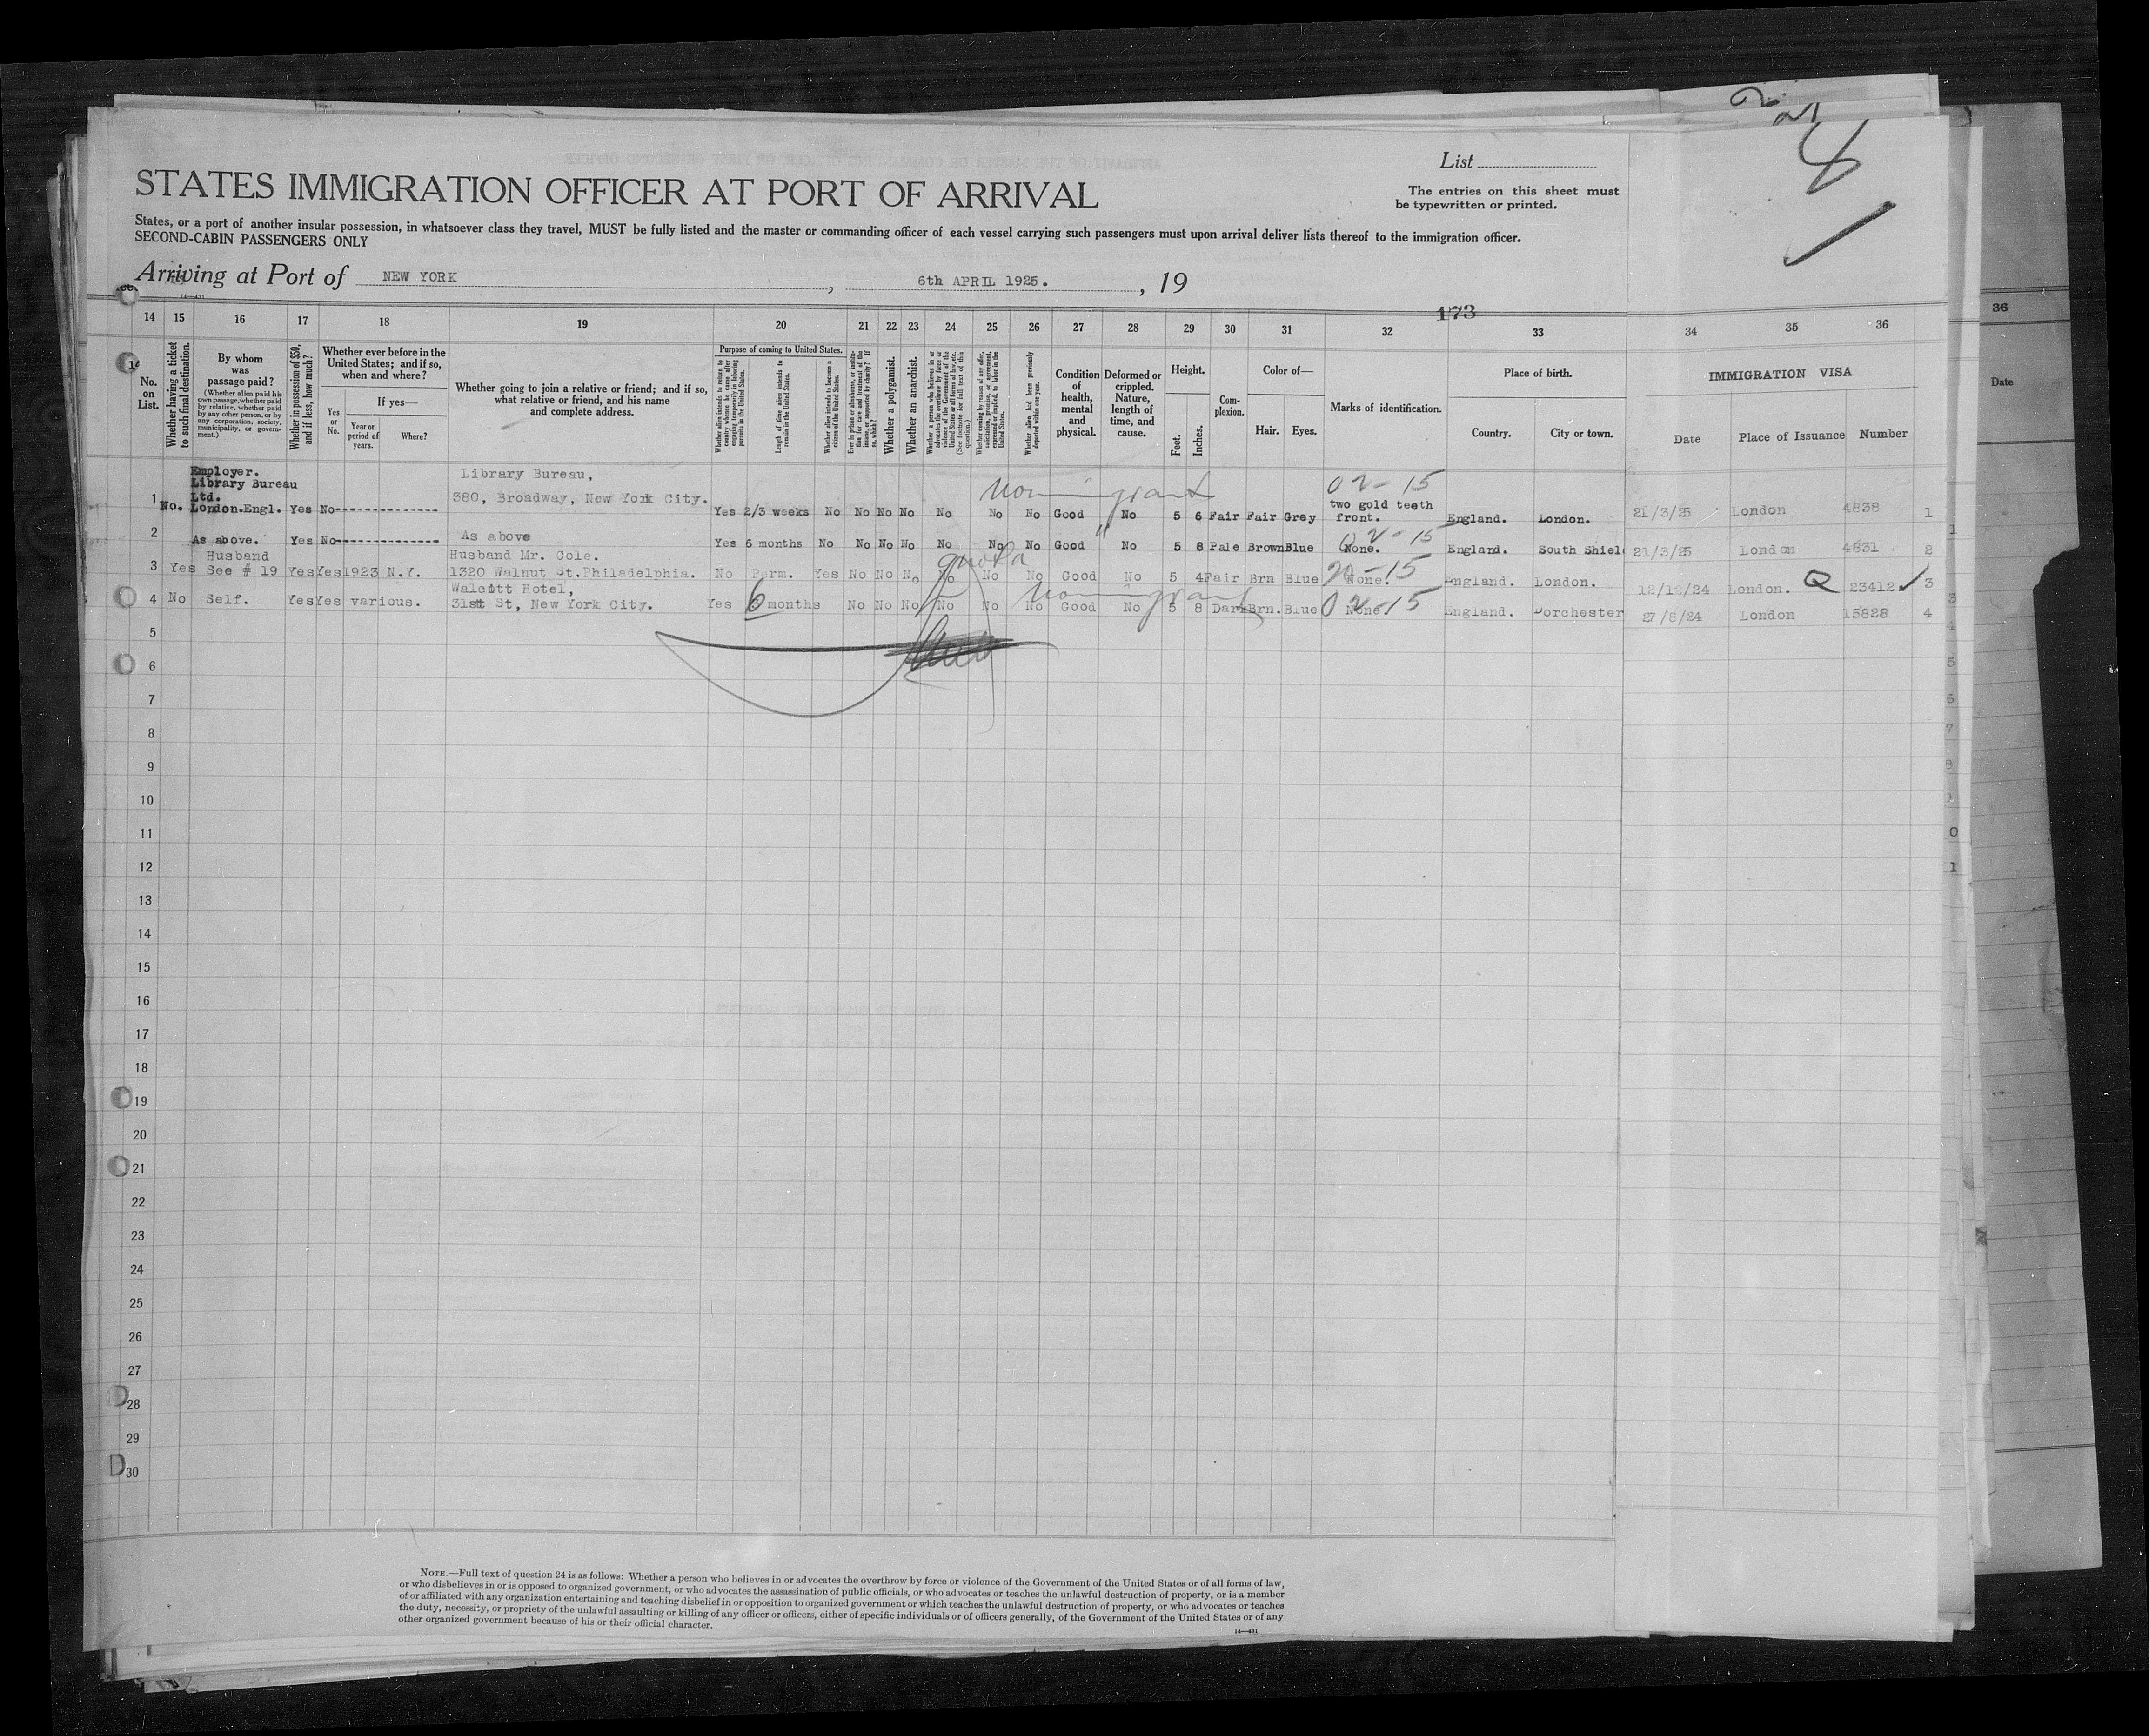 List
STATES IMMIGRATION OFFICER AT PORT OF ARRIVAL
The entries on this sheet must
be typewritten or printed.
States, or a port of another insular possession, in whatsoever class they travel, MUST be fully listed and the master or commanding officer of each vessel carrying such passengers must upon arrival deliver lists thereof to the immigration officer.
SECOND-CABIN PASSENGERS ONLY
Arriving at Port of NEW YORK, 6th APRIL 1925., 19
173
14 15 16 17 18 19 20 21 22 23 24 25 26 27 28 29 30 31 32 33 34 35 36
36
No. on List.
Whether having a ticket to such final destination.
By whom was passage paid?
(Whether alien paid his own passage, whether paid by relative, whether paid by any other person, or by any corporation, society, municipality, or government.)
Whether in possession of $50, and if less, how much?
Whether ever before in the United States; and if so, when and where?
Yes or No.
If yes—
Year or period of years.
Where?
Whether going to join a relative or friend; and if so, what relative or friend, and his name and complete address.
Purpose of coming to United States.
Whether alien intends to return to country whence he came after engaging temporarily in laboring pursuits in the United States.
Length of time alien intends to remain in the United States.
Whether alien intends to become a citizen of the United States.
Ever in prison or almshouse, or institution for care and treatment of the insane, or supported by charity? If so, which?
Whether a polygamist.
Whether an anarchist.
Whether coming by reason of any offer, solicitation, promise, or agreement, expressed or implied, to labor in the United States.
Whether alien had been previously deported within one year.
Condition of health, mental and physical.
Deformed or crippled. Nature, length of time, and cause.
Height.
Feet.
Inches.
Complexion.
Color of—
Hair.
Eyes.
Marks of identification.
Place of birth.
Country.
City or town.
IMMIGRATION VISA
Date
Place of Issuance
Number
Date
1 No. Employer. Library Bureau Ltd. London.Engl. Yes No Library Bureau, 380, Broadway, New York City. Yes 2/3 weeks No No No No No No No Good No 5 6 Fair Fair Grey 02-15 two gold teeth front. England. London. 21/3/25 London 4838 1
2 As above. Yes No As above Yes 6 months No No No No No No No Good No 5 8 Pale Brown Blue 02-15 None. England. South Shiel 21/3/25 London 4831 2
3 Yes Husband See # 19 Yes Yes 1923 N.Y. Husband Mr. Cole. 1320 Walnut St.Philadelphia. No Perm. Yes No No No quota No No No Good No 5 4 Fair Brn Blue 20-15 None. England. London. 12/12/24 London. Q 23412 3
4 No Self. Yes Yes various. Walcott Hotel, 31st St, New York City. Yes 6 months No No No No No No Good No 5 8 Dark Brn. Blue 02-15 None England. Dorchester 27/8/24 London 15828 4
5
6
7
8
9
10
11
12
13
14
15
16
17
18
19
20
21
22
23
24
25
26
27
28
29
30
NOTE.—Full text of question 24 is as follows: Whether a person who believes in or advocates the overthrow by force or violence of the Government of the United States or of all forms of law,
or who disbelieves in or is opposed to organized government, or who advocates the assassination of public officials, or who advocates or teaches the unlawful destruction of property, or is a member
of or affiliated with any organization entertaining and teaching disbelief in or opposition to organized government or which teaches the unlawful destruction of property, or who advocates or teaches
the duty, necessity, or propriety of the unlawful assaulting or killing of any officer or officers, either of specific individuals or of officers generally, of the Government of the United States or of any
other organized government because of his or their official character.
14—431